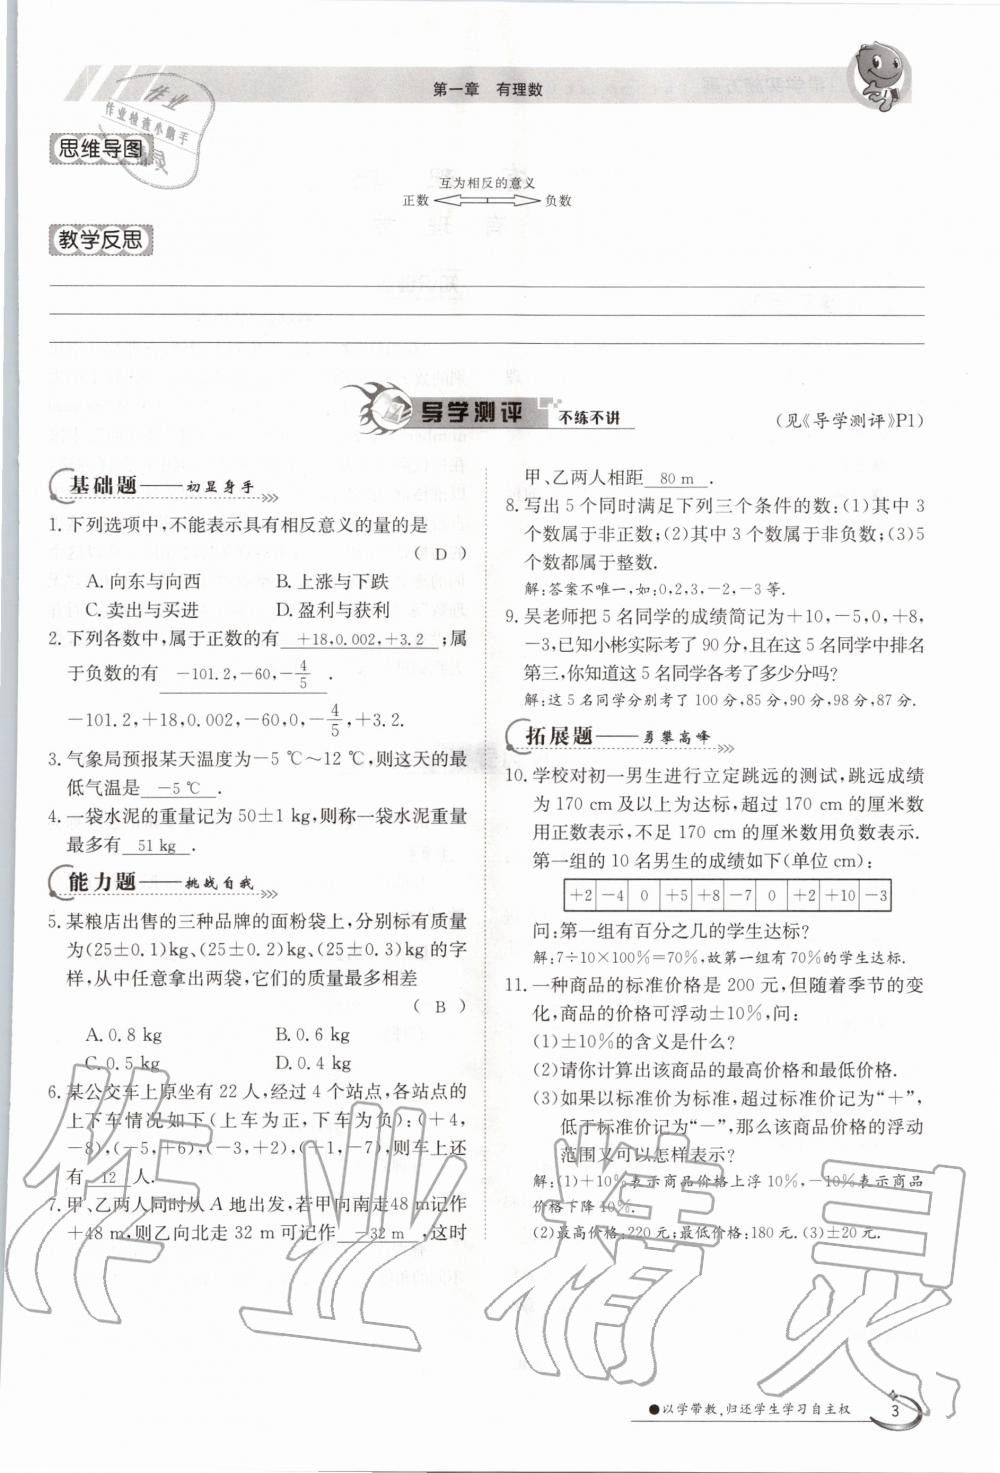 第一章 有理数
作业
作业检查小助手
思维导图
互为相反的意义
正数 负数
教学反思
导学测评 不练不讲
(见《导学测评》P1)
基础题——初显身手
1. 下列选项中,不能表示具有相反意义的量的是
( D )
A. 向东与向西 B. 上涨与下跌
C. 卖出与买进 D. 盈利与获利
2. 下列各数中,属于正数的有 +18,0.002,+3.2 ;属
于负数的有 -101.2,-60,-4/5 .
-101.2,+18,0.002,-60,0,-4/5,+3.2.
3. 气象局预报某天温度为-5 ℃~12 ℃,则这天的最
低气温是 -5 ℃ .
4. 一袋水泥的重量记为 50±1 kg,则称一袋水泥重量
最多有 51 kg .
能力题——挑战自我
5. 某粮店出售的三种品牌的面粉袋上,分别标有质量
为(25±0.1)kg、(25±0.2)kg、(25±0.3)kg 的字
样,从中任意拿出两袋,它们的质量最多相差
( B )
A. 0.8 kg B. 0.6 kg
C. 0.5 kg D. 0.4 kg
6. 某公交车上原坐有 22 人,经过 4 个站点,各站点的
上下车情况如下(上车为正,下车为负):(+4,
-8),(-5,+6),(-3,+2),(+1,-7),则车上还
有 12 人.
7. 甲、乙两人同时从 A 地出发,若甲向南走48 m记作
+48 m,则乙向北走 32 m 可记作 -32 m ,这时
甲、乙两人相距 80 m .
8. 写出 5 个同时满足下列三个条件的数:(1)其中 3
个数属于非正数;(2)其中 3 个数属于非负数;(3)5
个数都属于整数.
解:答案不唯一,如:0,2,3,-2,-3等.
9. 吴老师把 5 名同学的成绩简记为+10,-5,0,+8,
-3,已知小彬实际考了 90 分,且在这 5 名同学中排名
第三,你知道这 5 名同学各考了多少分吗?
解:这 5 名同学分别考了 100 分,85 分,90 分,98 分,87 分.
拓展题——勇攀高峰
10. 学校对初一男生进行立定跳远的测试,跳远成绩
为 170 cm 及以上为达标,超过 170 cm 的厘米数
用正数表示,不足 170 cm 的厘米数用负数表示.
第一组的 10 名男生的成绩如下(单位 cm):
+2 -4 0 +5 +8 -7 0 +2 +10 -3
问:第一组有百分之几的学生达标?
解:7÷10×100%=70%,故第一组有 70%的学生达标.
11. 一种商品的标准价格是 200 元,但随着季节的变
化,商品的价格可浮动±10%,问:
(1)±10%的含义是什么?
(2)请你计算出该商品的最高价格和最低价格.
(3)如果以标准价为标准,超过标准价记为“+”,
低于标准价记为“-”,那么该商品价格的浮动
范围又可以怎样表示?
解:(1)+10%表示商品价格上浮 10%,-10%表示商品
价格下降 10%.
(2)最高价格:220 元;最低价格:180 元. (3)±20 元.
作业精灵
●以学带教,归还学生学习自主权
3